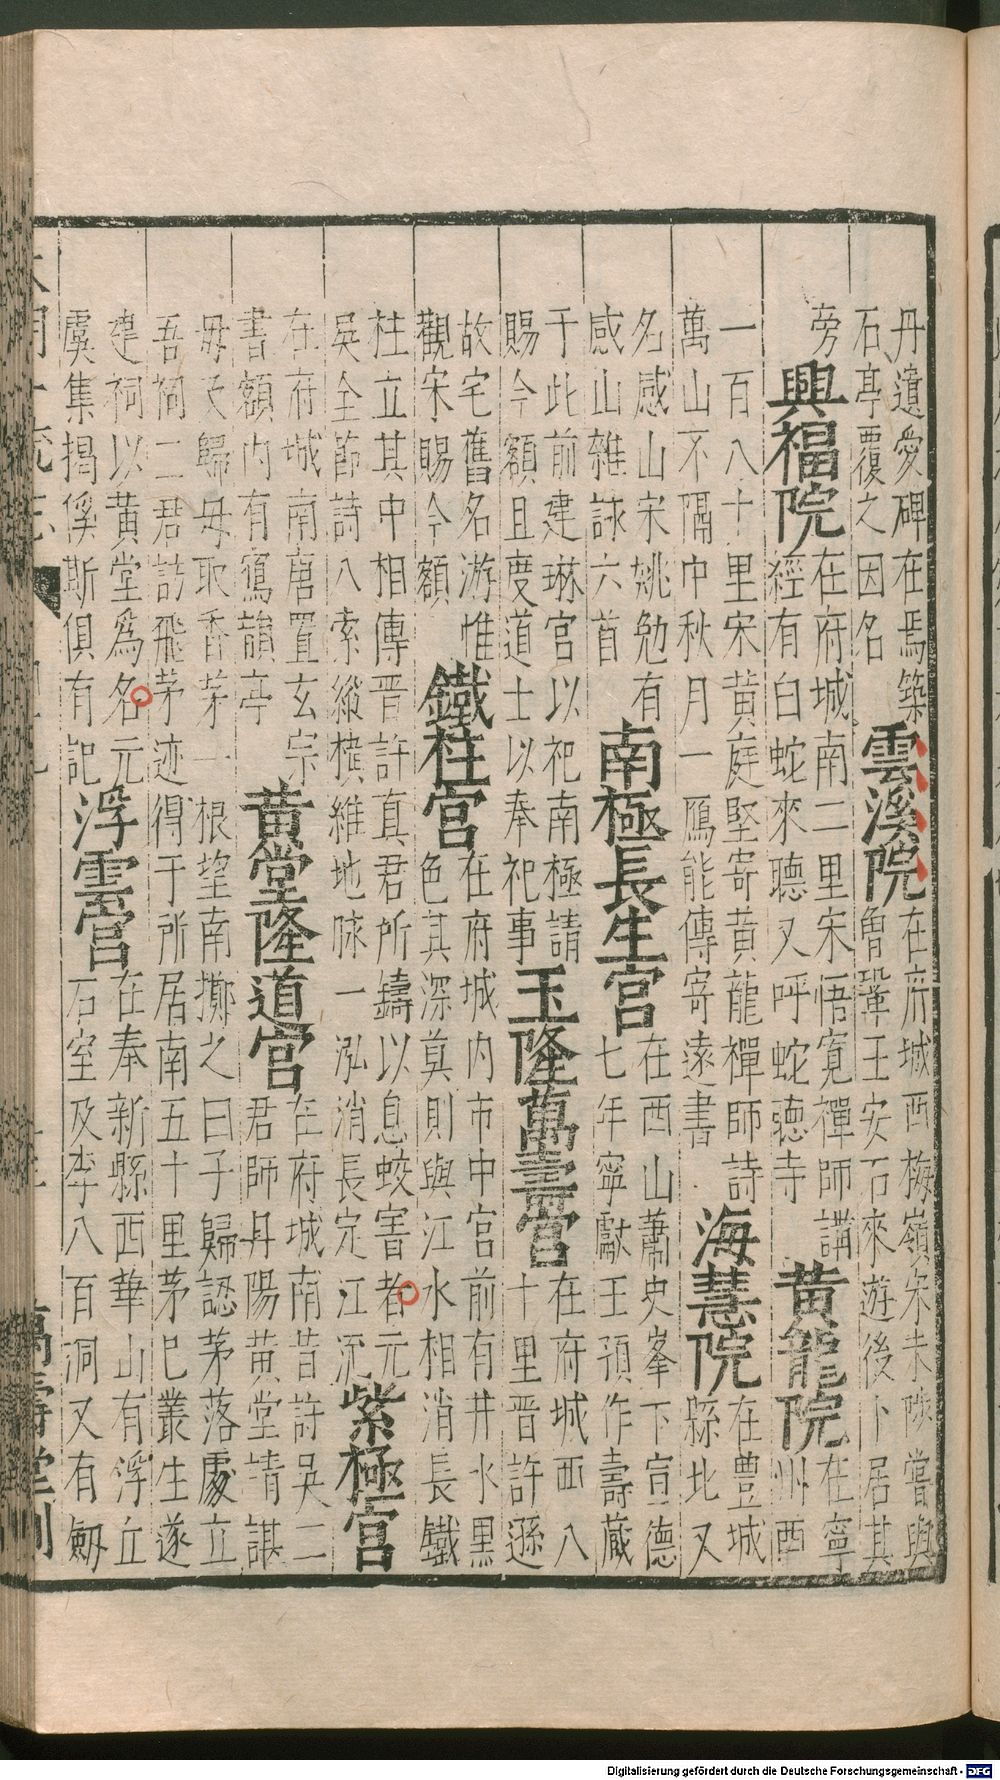 丹遺愛碑在焉築
石亭覆之因名
雲溪院
在府城西梅嶺宋未陟嘗與
曾鞏王安石來遊後卜居其
旁
興福院
在府城南二里宋悟寬禪師講
經有白蛇來聽又呼蛇聽寺
黃龍院
在寧
州西
一百八十里宋黃庭堅寄黃龍禪師詩
萬山不隔中秋月一鴈能傳寄遠書
海慧院
在豊城
縣北又
名感山宋姚勉有
感山雜詠六首
南極長生宮
在西山蕭史峯下宣德
七年寧獻王預作壽藏
于此前建琳宮以祀南極請
賜今額且度道士以奉祀事
玉隆萬壽宮
在府城西八
十里晉許遜
故宅舊名游惟
觀宋賜今額
鐵柱宮
在府城內市中宮前有井水黑
色其深莫則與江水相消長鐵
柱立其中相傳晉許真君所鑄以息蛟害者元
吳全節詩八索縱橫維地脉一泓消長定江流
紫極宮
在府城南唐置玄宗
書額內有寫韻亭
黃堂隆道宮
在府城南昔許吳二
君師丹陽黃堂請諶
毋及歸毋取香茅一根望南擲之曰子歸認茅落處立
吾祠二君訪飛茅迹得于所居南五十里茅巳叢生遂
建祠以黃堂爲名元
虞集揭傒斯俱有記
浮雲宮
在奉新縣西華山有浮丘
石室及李八百洞又有劔
萬壽堂刊
Digitalisierung gefördert durch die Deutsche Forschungsgemeinschaft - DFG